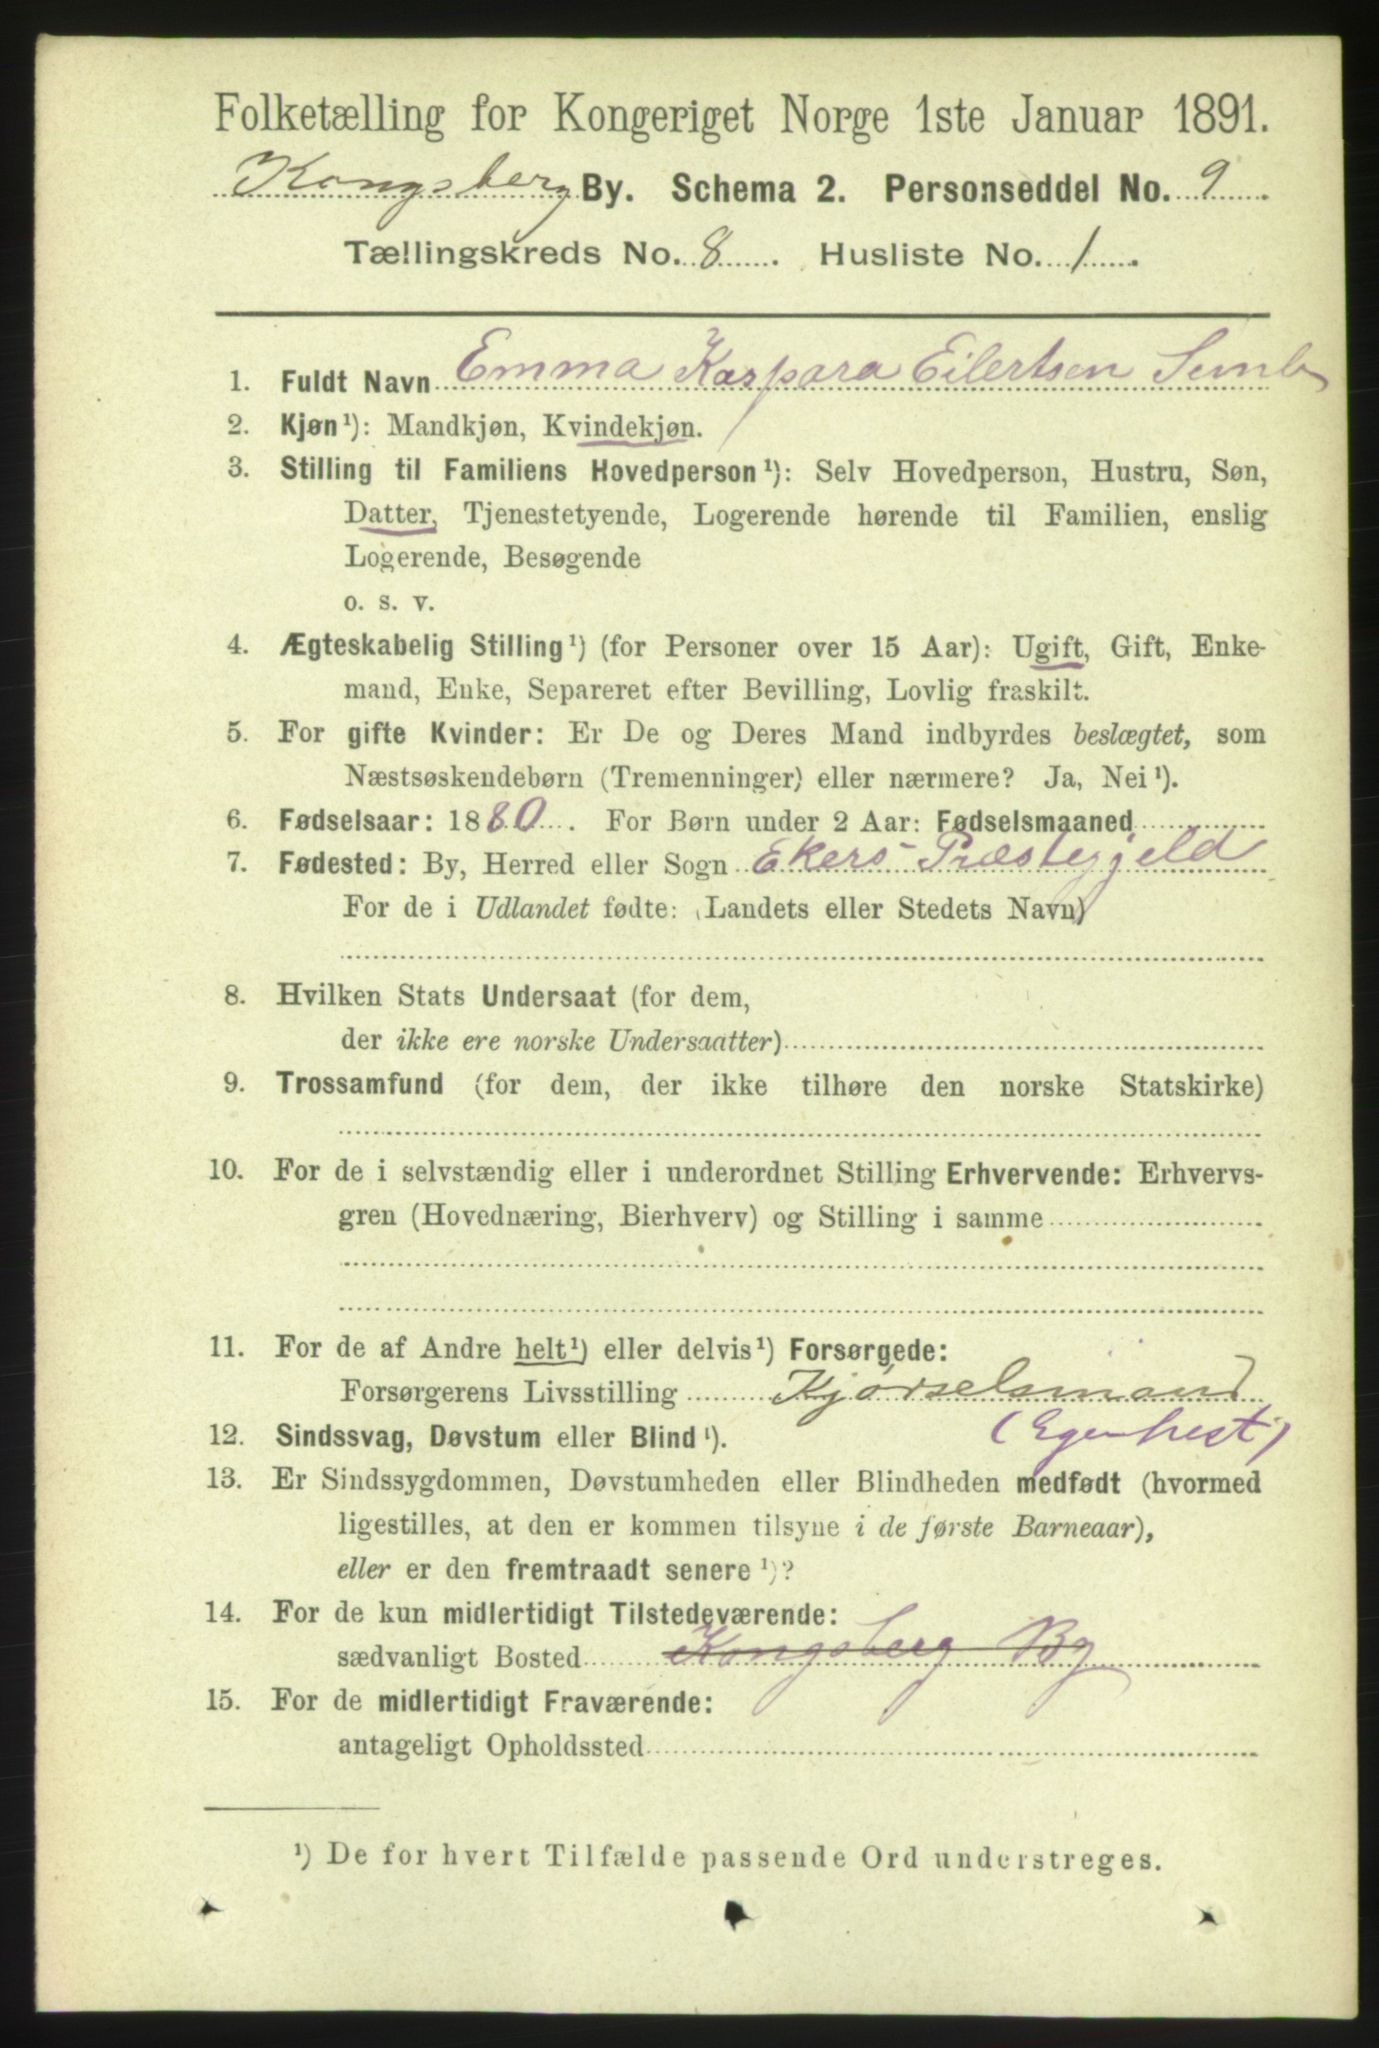 Folketælling for Kongeriget Norge 1ste Januar 1891.
Kongsberg By. Schema 2. Personseddel No. 9
Tællingskreds No. 8. Husliste No. 1.
1. Fuldt Navn Emma Kaspara Eilertsen Semb
2. Kjøn ¹): Mandkjøn, Kvindekjøn.
3. Stilling til Familiens Hovedperson ¹): Selv Hovedperson, Hustru, Søn,
Datter, Tjenestetyende, Logerende hørende til Familien, enslig
Logerende, Besøgende
o. s. v.
4. Ægteskabelig Stilling ¹) (for Personer over 15 Aar): Ugift, Gift, Enke-
mand, Enke, Separeret efter Bevilling, Lovlig fraskilt.
5. For gifte Kvinder: Er De og Deres Mand indbyrdes beslægtet, som
Næstsøskendebørn (Tremenninger) eller nærmere? Ja, Nei ¹).
6. Fødselsaar: 1880. For Børn under 2 Aar: Fødselsmaaned
7. Fødested: By, Herred eller Sogn Ekers Præstegjeld
For de i Udlandet fødte: (Landets eller Stedets Navn)
8. Hvilken Stats Undersaat (for dem,
der ikke ere norske Undersaatter)
9. Trossamfund (for dem, der ikke tilhøre den norske Statskirke)
10. For de i selvstændig eller i underordnet Stilling Erhvervende: Erhvervs-
gren (Hovednæring, Bierhverv) og Stilling i samme
11. For de af Andre helt ¹) eller delvis ¹) Forsørgede:
Forsørgerens Livsstilling Kjørselsmand
(Egen hest)
12. Sindssvag, Døvstum eller Blind ¹).
13. Er Sindssygdommen, Døvstumheden eller Blindheden medfødt (hvormed
ligestilles, at den er kommen tilsyne i de første Barneaar),
eller er den fremtraadt senere ¹)?
14. For de kun midlertidigt Tilstedeværende:
sædvanligt Bosted Kongsberg By
15. For de midlertidigt Fraværende:
antageligt Opholdssted
¹) De for hvert Tilfælde passende Ord understreges.